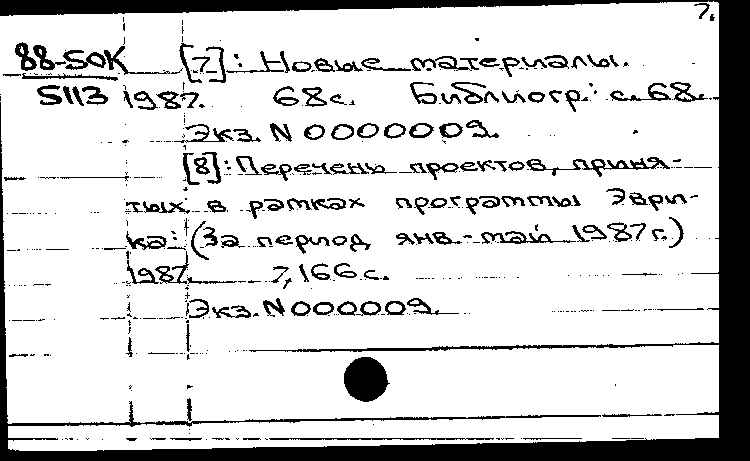 7.
88-50К [7]: Новые материалы.
5113 1987. 68с. Библиогр.: с. 68.
Экз. N 0000009.
[8]: Перечень проектов, приня-
тых в рамках программы Эври-
ка: (За период янв.-май 1987г.)
1987. 7,166 с.
Экз. N 000009.